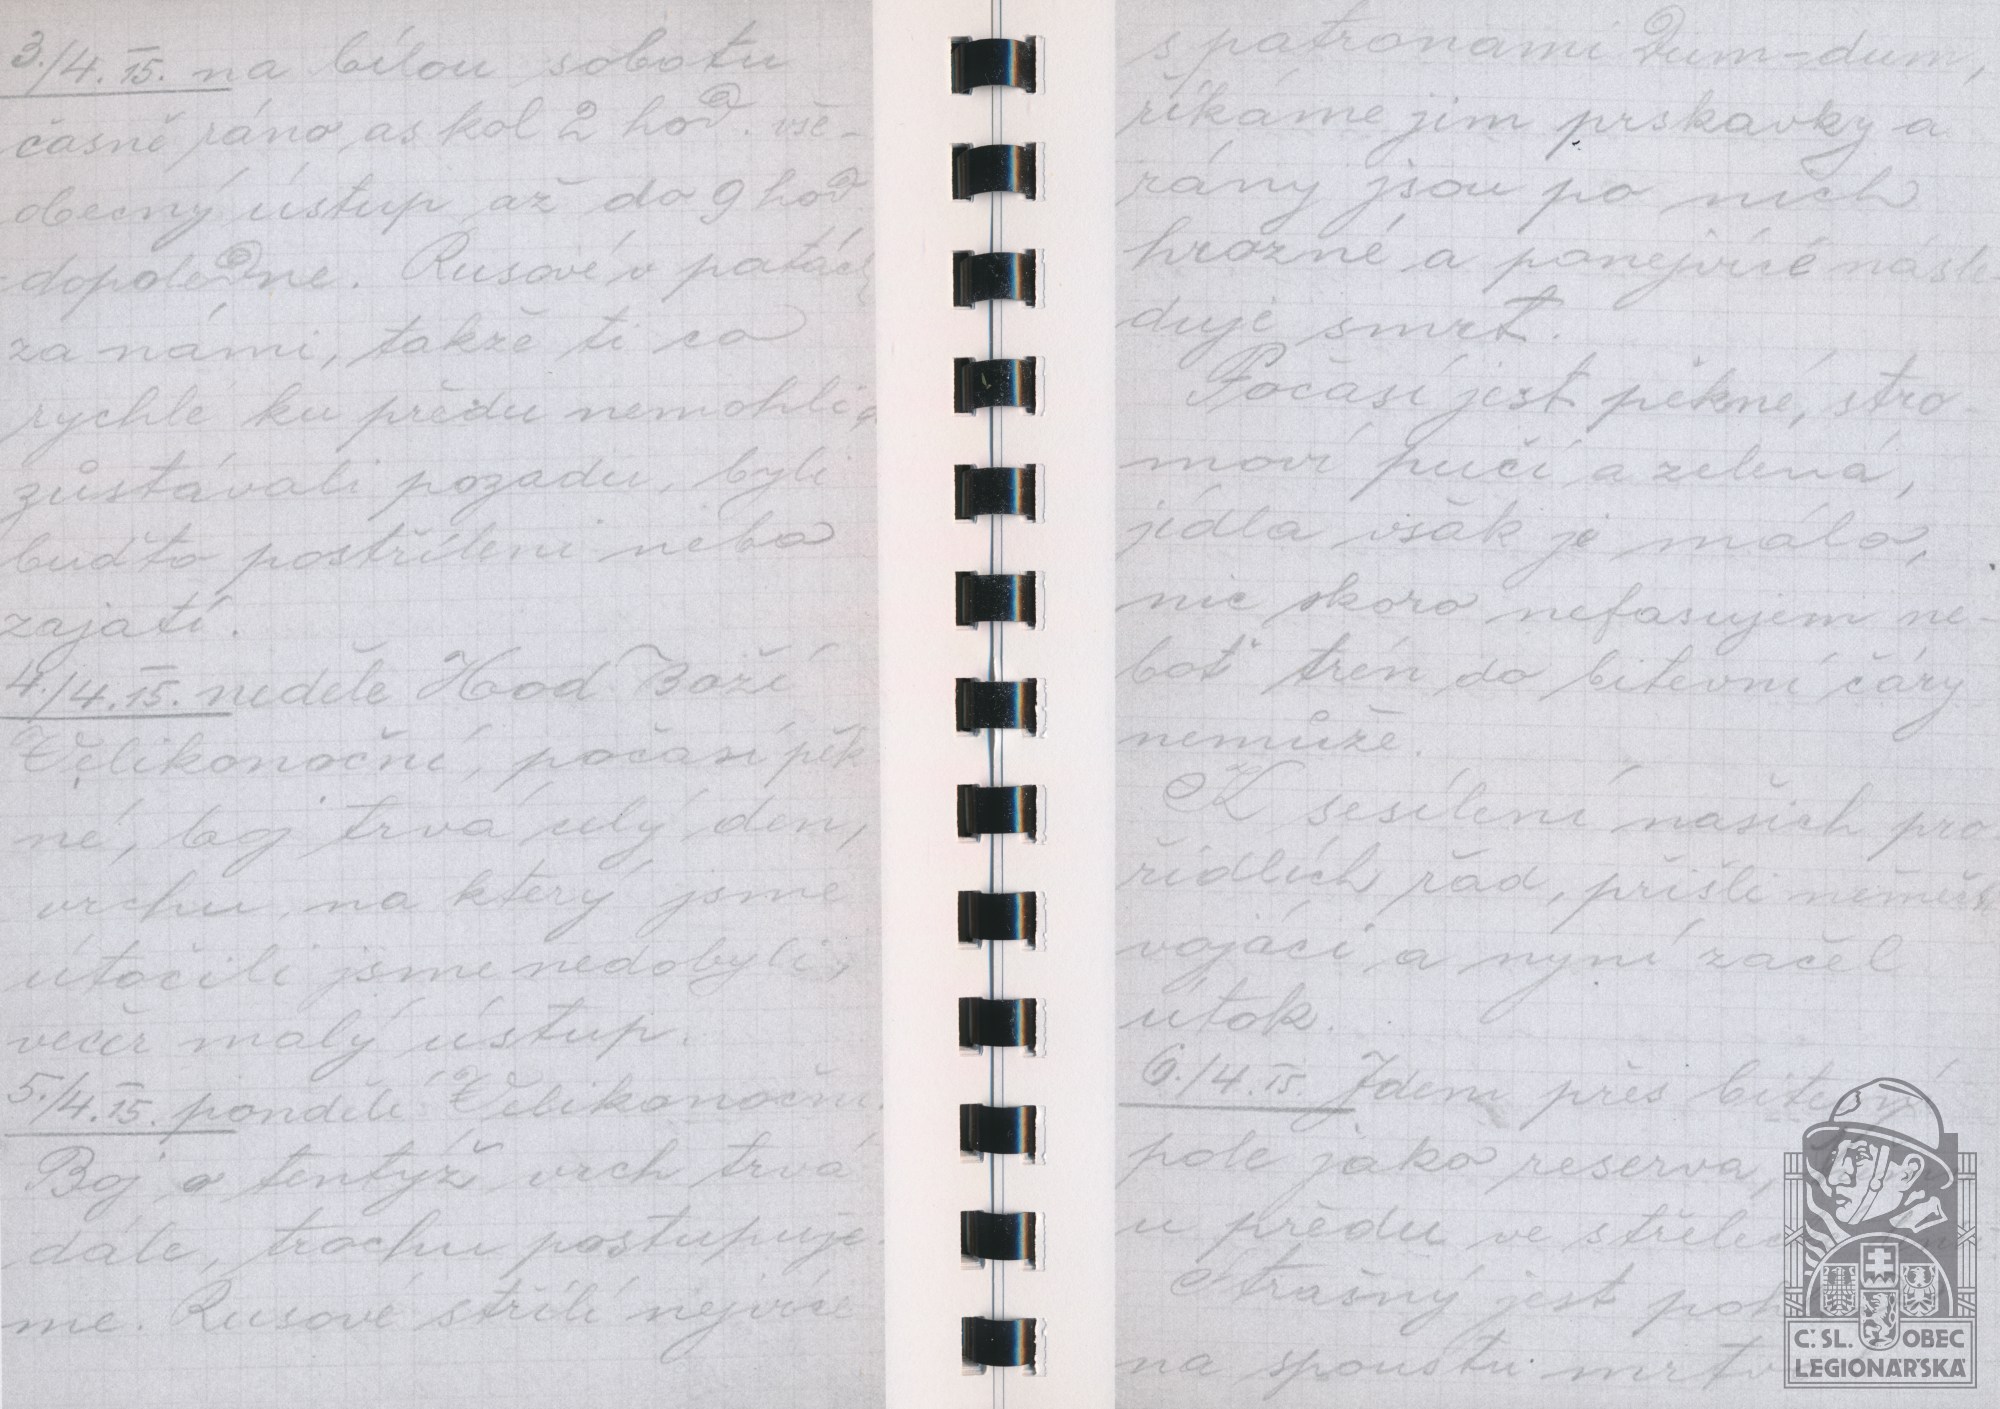 3./4. 15. na bílou sobotu
časně ráno as kol 2 hod. vše-
obecný ústup až do 9 hod.
dopoledne. Rusové v patách
za námi, takže ti co
rychle ku předu nemohli a
zůstávali pozadu, byli
buďto postříleni nebo
zajatí.
4./4. 15. neděle Hod Boží
Velikonoční, počasí pěk
né, boj trvá celý den,
vrchu, na který jsme
útočili jsme nedobyli,
večer malý ústup.
5./4. 15. pondělí Velikonoční.
Boj o tentýž vrch trvá
dále, trochu postupuje-
me. Rusové střílí nejvíce
s patronami Dum-dum,
říkáme jim prskavky a
rány jsou po nich
hrozné a ponejvíce násle
duje smrt.
Počasí jest pěkné, stro-
moví pučí a zelená,
jídla však je málo,
nic skoro nefasujem ne-
boť trén do bitevní čáry
nemůže.
K sesílení našich pro
řídlích řad, přišli němečtí
vojáci a nyní začel
útok.
6./4. 15. Jdem přes bitevní
pole jako reserva,
u předu ve střelec
Strašný jest poh
na spoustu mrtv
Č. SL. OBEC
LEGIONÁŘSKÁ